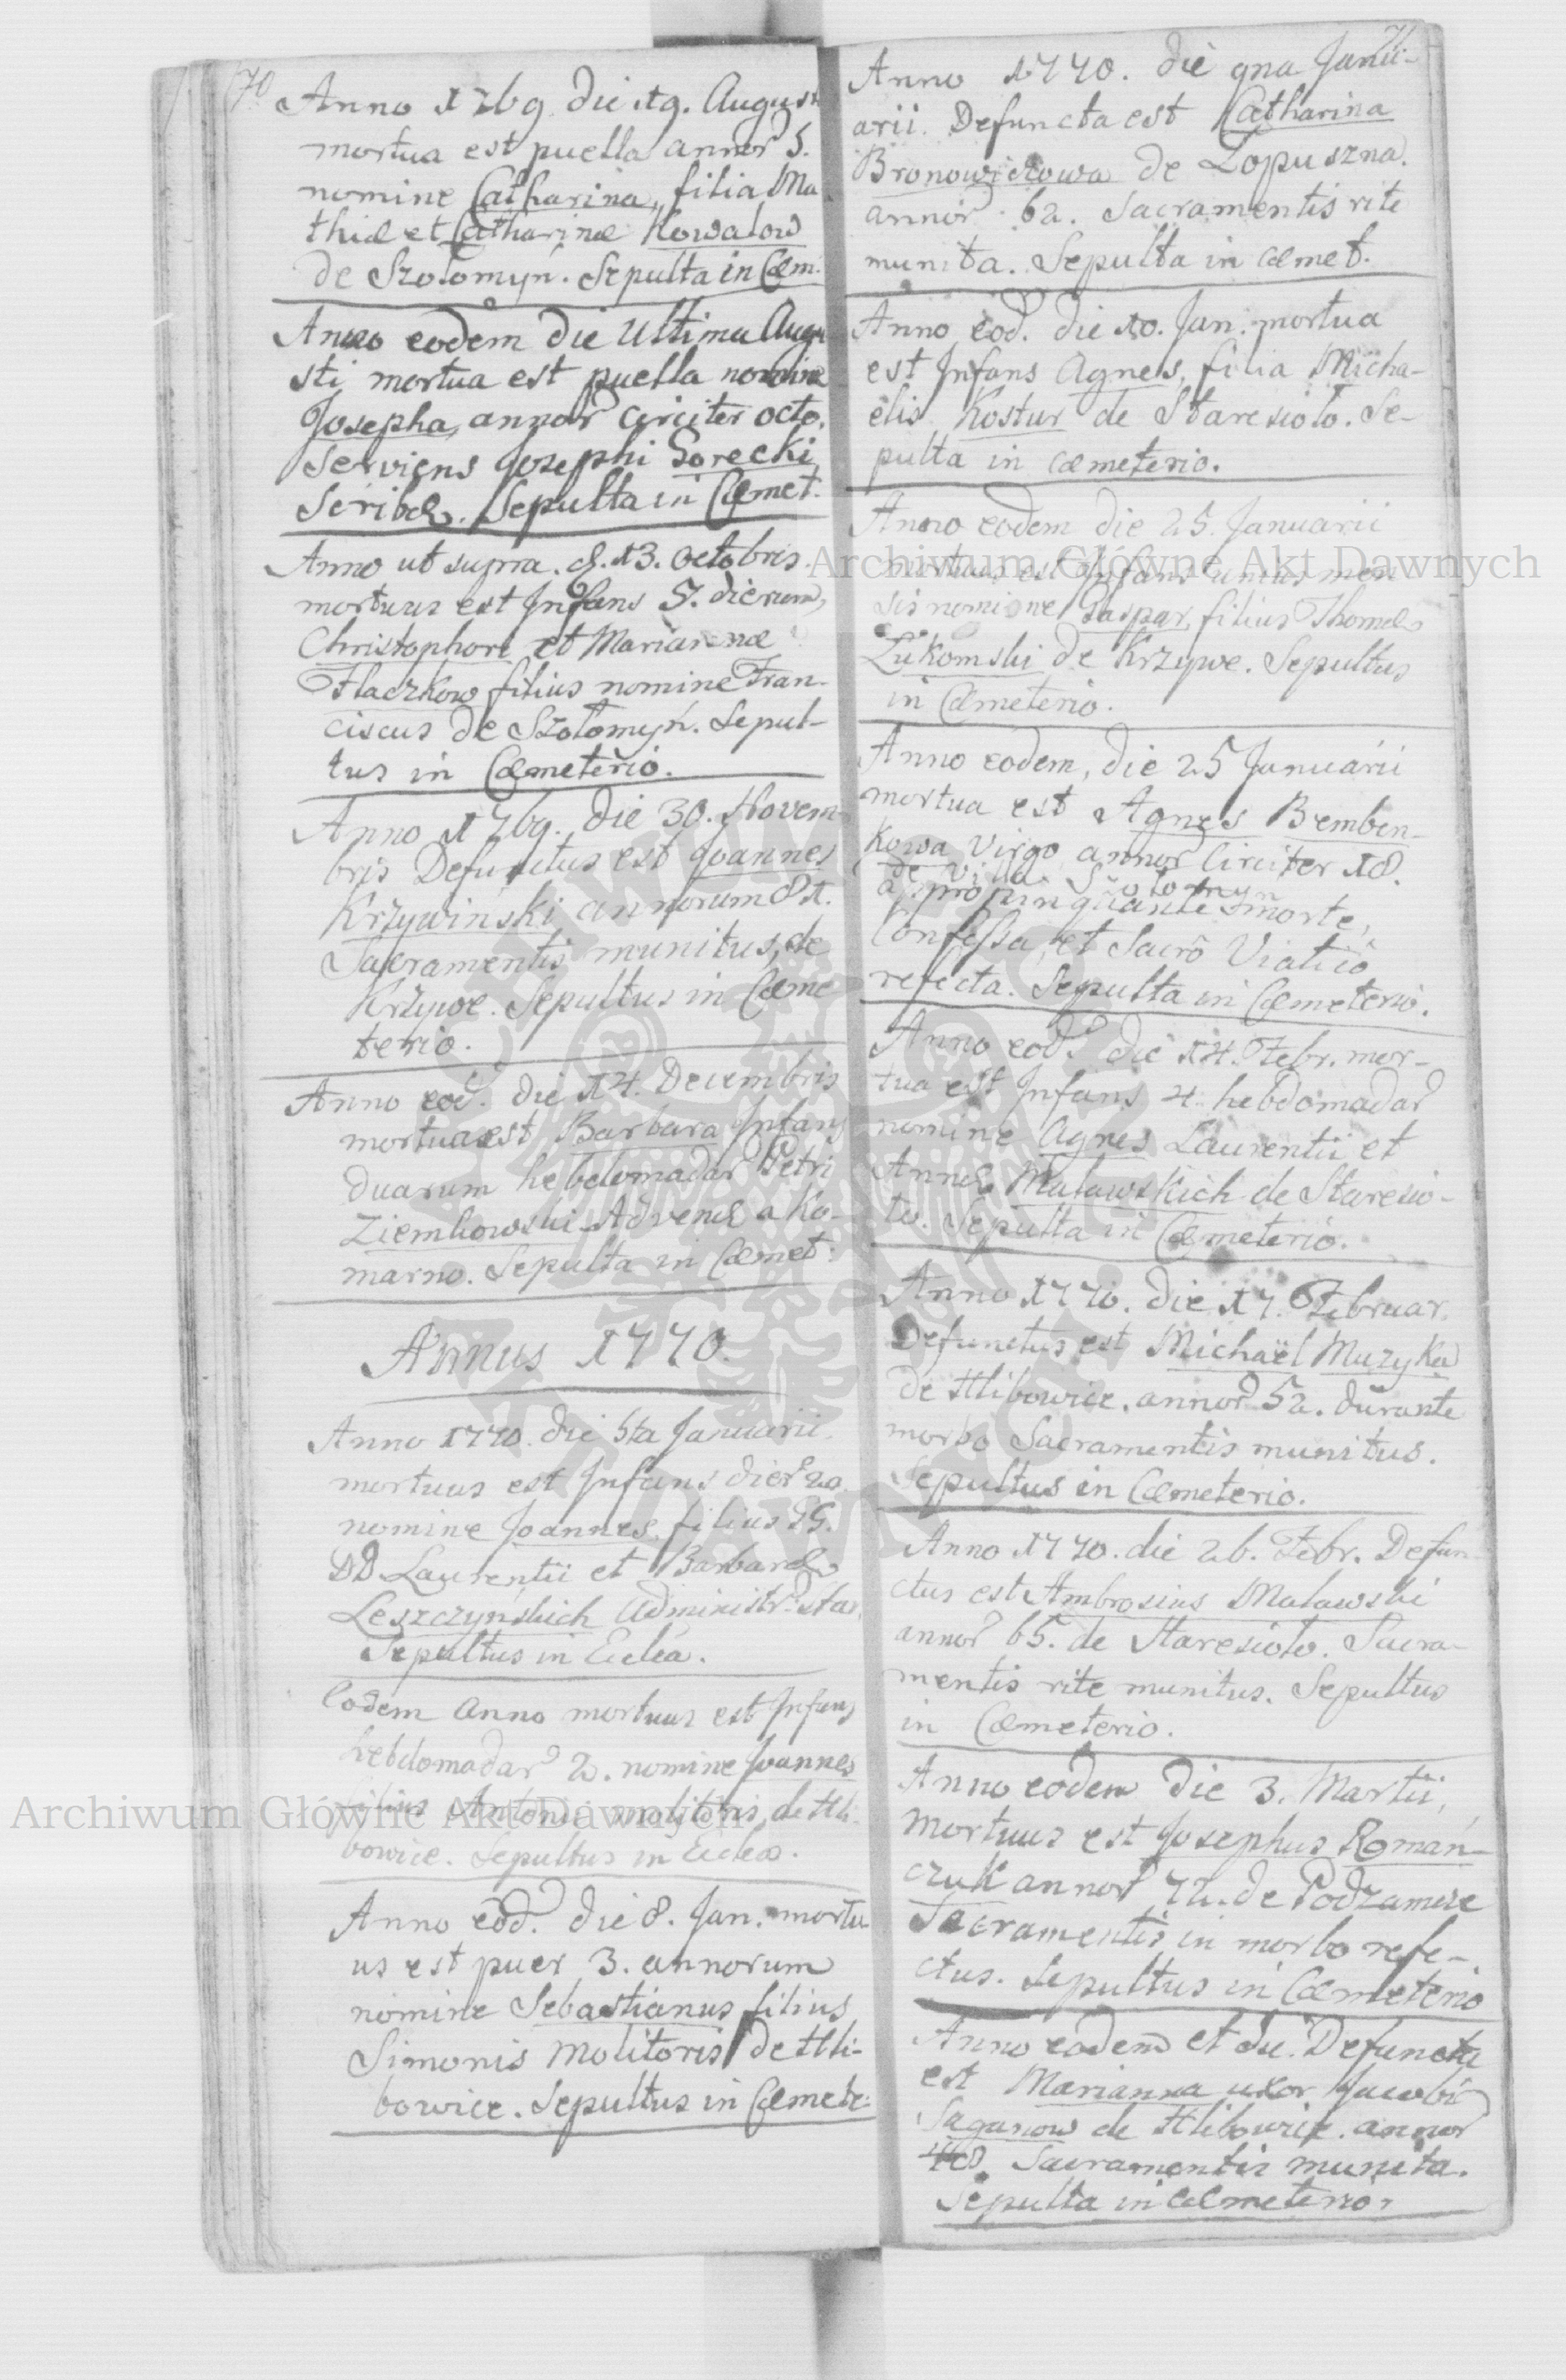 70
Anno 1769. die 19. August
mortua est puella annor 5.
nomine Catharina, filia Ma
thiæ et Catharinæ Kowalow
de Szołomyn. Sepulta in Cæm.
Anno eodem die Ultima Augu
sti mortua est puella nomine
Josepha, annor circiter octo,
serviens Josephi Gorecki
Scribæ. Sepulta in Cæmet.
Anno ut supra. d. 13. Octobris.
mortuus est Infans 5. dierum,
Christophori et Mariannæ
Flaczkow filius nomine Fran-
ciscus de Szołomyń. Sepul-
tus in Cæmeterio.
Anno 1769. die 30. Novem-
bris Defunctus est Joannes
Krzywinski annorum 81.
Sacramentis munitus, de
Krzywe. Sepultus in Cæme
terio.
Anno eod. die 14. Decembris
mortua est Barbara Infans
duarum hebdomadar Petri
Ziembowski Advenæ a Ko-
marno. Sepulta in Cæmet.
Annus 1770.
Anno 1770. die 6ta Januarii.
mortuus est Infans dier 20.
nomine Joannes filius GG.
DD Laurentii et Barbaræ
Leszczyńskich Administr. Star.
Sepultus in Eclia.
Eodem anno mortuus est Infans
hebdomadar 2. nomine Joannes
filius Antonii molitoris, de Hli-
bowice. Sepultus in Eclea.
Anno eod. die 8. Jan. mortu
us est puer 3. annorum
nomine Sebastianus filius
Simonis Molitoris de Hli-
bowice. Sepultus in Cæmete:
71
Anno 1770. die 9na Janu-
arii. Defuncta est Catharina
Bronowickowa de Łopuszna.
annor. 62. Sacramentis rite
munita. Sepulta in cæmet.
Anno eod. die 10. Jan. mortua
est Infans Agnes, filia Micha-
elis Kostur de Staresioło. Se-
pulta in cæmeterio.
Anno eodem die 25. Januarii
mortuus est Infans unius men
sis nomine Gaspar, filius Thomæ
Łukomski de Krzywe. Sepultus
in Cæmeterio.
Anno eodem, die 25 Januarii
mortua est Agnes Bemben-
kowa Virgo annor Circiter 18.
de villa Szołomyn
appropinquante morte,
Confessa, et Sacrô Viaticô
refecta. Sepulta in Cæmeterio.
Anno eod. die 14. Febr. mor-
tua est Infans 4. hebdomadar
nomine Agnes Laurentii et
Annæ Maławskich de Staresio-
ło. Sepulta in Cæmeterio.
Anno 1770. die 17. Februar.
Defunctus est Michaël Muzyka
de Hlibowice. annor 52. durante
morbo Sacramentis munitus.
Sepultus in Cæmeterio.
Anno 1770. die 26. Febr. Defun-
ctus est Ambrosius Maławski
annor 65. de Staresioło. Sacra-
mentis rite munitus. Sepultus
in Cæmeterio.
Anno eodem die 3. Martii,
mortuus est Josephus Román-
czuk annor 72. de Podzamcze
Sacramentis in morbo refe-
ctus. Sepultus in Cæmeterio
Anno eodem et die. Defuncta
est Marianna uxor Jacobi
Saganow de Hlibowice. annor
48. Sacramentis munita.
Sepulta in Cæmeterio.
Archiwum Główne Akt Dawnych
Archiwum Główne Akt Dawnych
ARCHIWUM GŁÓWNE AKT DAWNYCH